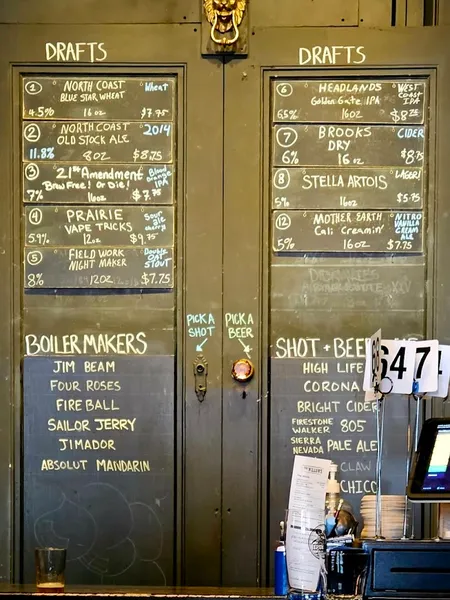 DRAFTS
1 NORTH COAST Wheat
BLUE STAR WHEAT
4.5% 16oz $7.75
2 NORTH COAST 2014
OLD STOCK ALE
11.8% 8oz $8.75
3 21st Amendment Blood
Brew Free! or Die! Orange
IPA
7% 16oz $7.75
4 PRAIRIE Sour
VAPE TRICKS ale
cherry
5.9% 12oz $9.75
5 FIELD WORK Double
NIGHT MAKER Oat
STOUT
8% 12oz $7.75
DRAFTS
6 HEADLANDS WEST
Golden Gate IPA COAST
IPA
6.5% 16oz $8.25
7 BROOKS CIDER
DRY
6% 16oz $8.75
8 STELLA ARTOIS LAGER!
5% 16oz $5.75
12 MOTHER EARTH NITRO
Cali Creamin' VANILLA
CREAM
ALE
5% 16oz $7.75
BOILERMAKERS
JIM BEAM
FOUR ROSES
FIREBALL
SAILOR JERRY
JIMADOR
ABSOLUT MANDARIN
PICK A
SHOT
PICK A
BEER
SHOT + BEER
HIGH LIFE
CORONA
BRIGHT CIDER
FIRESTONE
WALKER 805
SIERRA
NEVADA PALE ALE
CLAW
CHICO
64
7